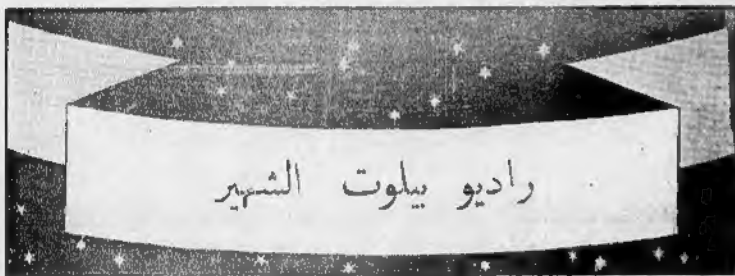 راديو بيلوت الشهير